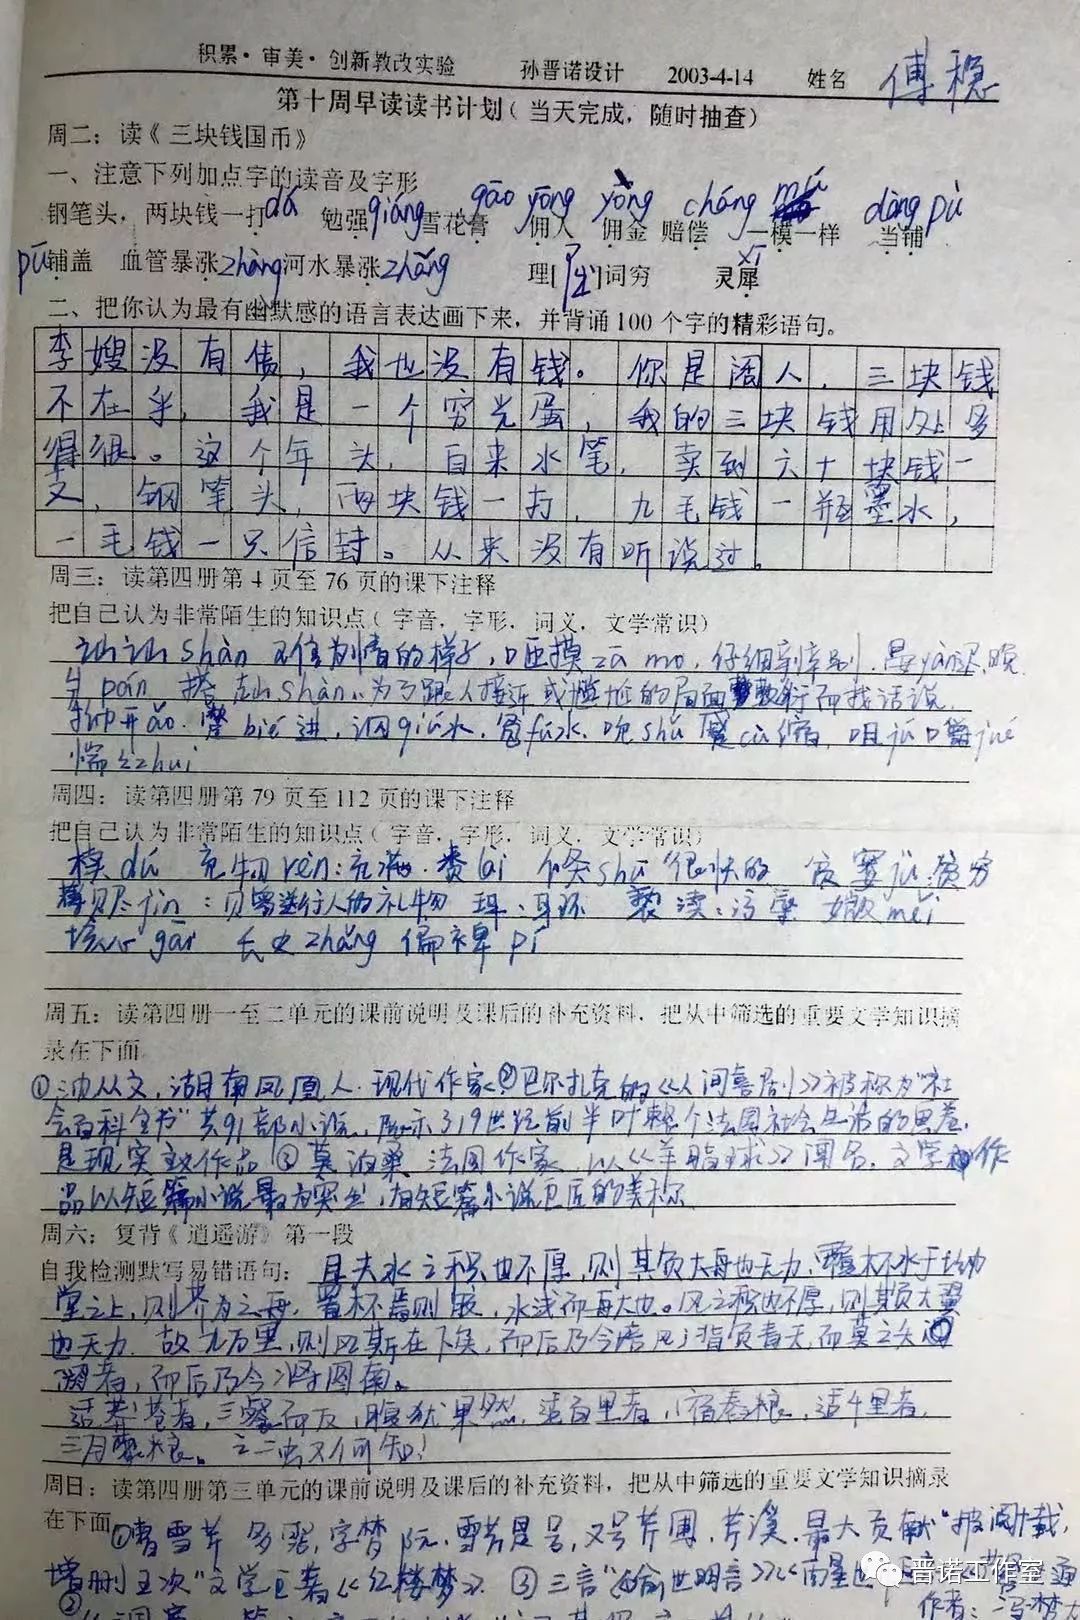 积累·审美·创新教改实验 孙晋诺设计 2003-4-14 姓名 傅稳
第十周早读读书计划(当天完成,随时抽查)
周二:读《三块钱国币》
一、注意下列加点字的读音及字形
钢笔头,两块钱一打dá 勉强qiáng 雪花膏gāo 佣人yōng 佣金yòng 赔偿cháng 一模一样mú 当铺dàng pù
pū铺盖 血管暴涨zhàng 河水暴涨zhǎng 理[屈]词穷 灵犀xī
二、把你认为最有幽默感的语言表达画下来,并背诵100个字的精彩语句。
李嫂没有债,我也没有钱。你是阔人,三块钱
不在乎,我是一个穷光蛋,我的三块钱用处多
得很。这个年头,自来水笔,卖到六十块钱一
支,钢笔头,两块钱一打,九毛钱一瓶墨水,
一毛钱一只信封。从来没有听说过。
周三:读第四册第4页至76页的课下注释
把自己认为非常陌生的知识点(字音,字形,词义,文学常识)
讪讪shàn 难为情的样子,咂摸zā mo,仔细辨别.
搭讪shàn:为了跟人接近或尴尬的局面而找话说.
拗开ǎo. biē进,泅qiú水,凫fú水,吮shǔn 蹙cù缩,咀jǔ嚼jué
惴惴zhuì
周四:读第四册第79页至112页的课下注释
把自己认为非常陌生的知识点(字音,字形,词义,文学常识)
椟dú 充牣rèn:充满. 赉lài 倏shū 很快的 贫窭jù:贫穷
赆jìn:赠送行人的礼物 珥:耳环 亵渎:污辱 媺měi
垓心gāi 长史zhǎng 偏裨pí
周五:读第四册一至二单元的课前说明及课后的补充资料,把从中筛选的重要文学知识摘
录在下面
①沈从文,湖南凤凰人.现代作家②巴尔扎克的《人间喜剧》被称为"社
会百科全书"共91部小说,展示了19世纪前半叶整个法国社会生活的
是现实主义作品③莫泊桑 法国作家,以《羊脂球》闻名.文学作
品以短篇小说最为突出,有短篇小说巨匠的美称
周六:复背《逍遥游》第一段
自我检测默写易错语句:且夫水之积也不厚,则其负大舟也无力.覆杯水于坳
堂之上,则芥为之舟,置杯焉则胶,水浅而舟大也。风之积也不厚,则其负大翼
也无力.故九万里,则风斯在下矣,而后乃今培风;背负青天,而莫之夭
阏者,而后乃今将图南。
适莽苍者,三餐而反,腹犹果然,适百里者,宿舂粮,适千里者,
三月聚粮。之二虫又何知!
周日:读第四册第三单元的课前说明及课后的补充资料,把从中筛选的重要文学知识摘录
在下面①曹雪芹 名沾,字梦阮,雪芹是号,又号芹圃.芹溪.最大贡献"披阅十载,
增删五次"文学巨著《红楼梦》. ③三言《喻世明言》
②
作者:冯梦
晋诺工作室